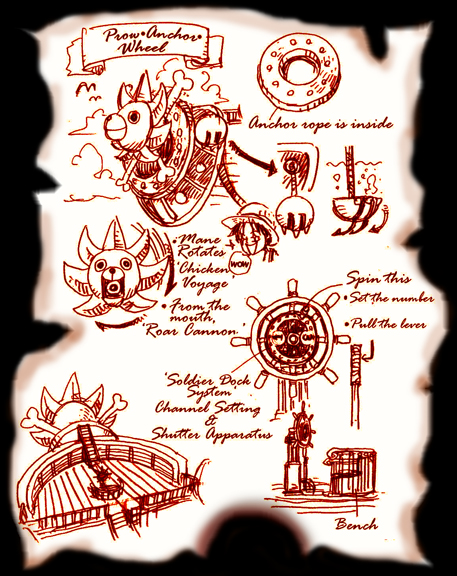 Prow•Anchor•
Wheel
Anchor rope is inside
WOW
•Mane
Rotates
•Chicken
Voyage
•From the
mouth,
'Roar Cannon.'
Spin this
•Set the number
•Pull the lever
'Soldier Dock
System'
Channel Setting
&
Shutter Apparatus
Bench